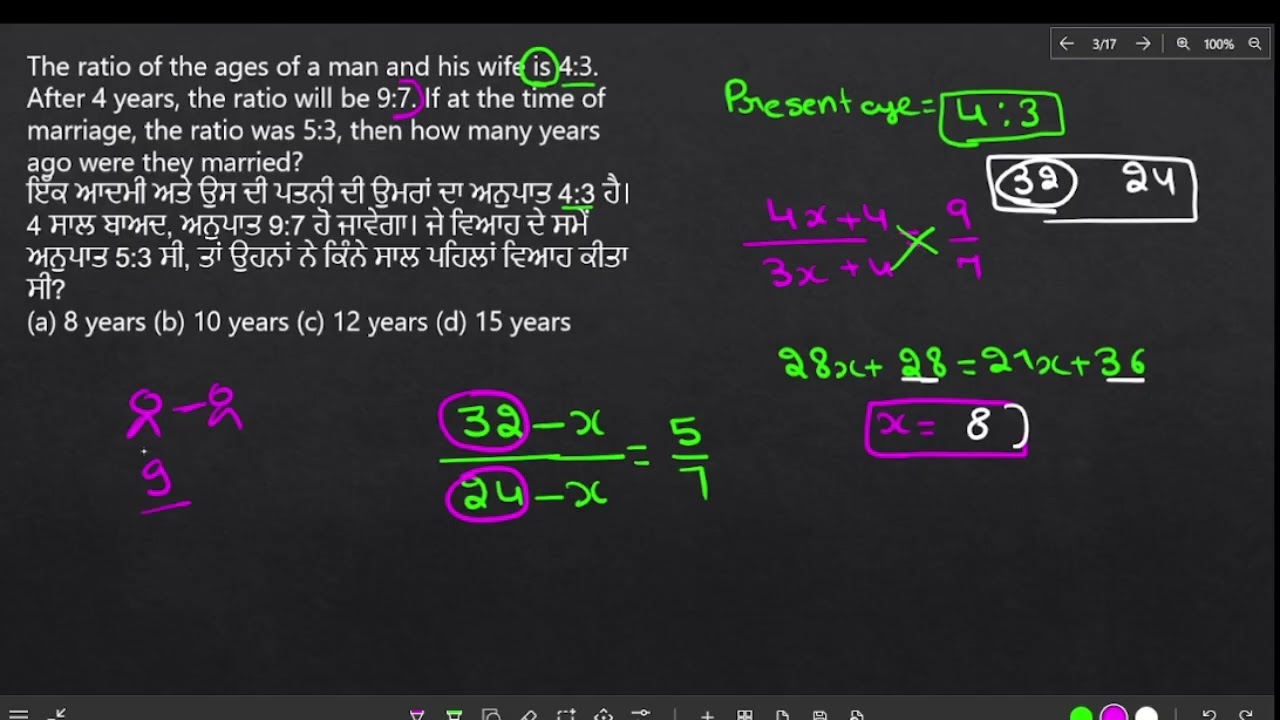 3/17
100%
The ratio of the ages of a man and his wife is 4:3.
After 4 years, the ratio will be 9:7. If at the time of
marriage, the ratio was 5:3, then how many years
ago were they married?
ਇੱਕ ਆਦਮੀ ਅਤੇ ਉਸ ਦੀ ਪਤਨੀ ਦੀ ਉਮਰਾਂ ਦਾ ਅਨੁਪਾਤ 4:3 ਹੈ।
4 ਸਾਲ ਬਾਅਦ, ਅਨੁਪਾਤ 9:7 ਹੋ ਜਾਵੇਗਾ। ਜੇ ਵਿਆਹ ਦੇ ਸਮੇਂ
ਅਨੁਪਾਤ 5:3 ਸੀ, ਤਾਂ ਉਹਨਾਂ ਨੇ ਕਿੰਨੇ ਸਾਲ ਪਹਿਲਾਂ ਵਿਆਹ ਕੀਤਾ
ਸੀ?
(a) 8 years (b) 10 years (c) 12 years (d) 15 years
Present age = 4 : 3
32 24
4x+4 = 9
3x+4 7
28x + 28 = 21x + 36
x = 8
32 - x = 5
24 - x 7
9